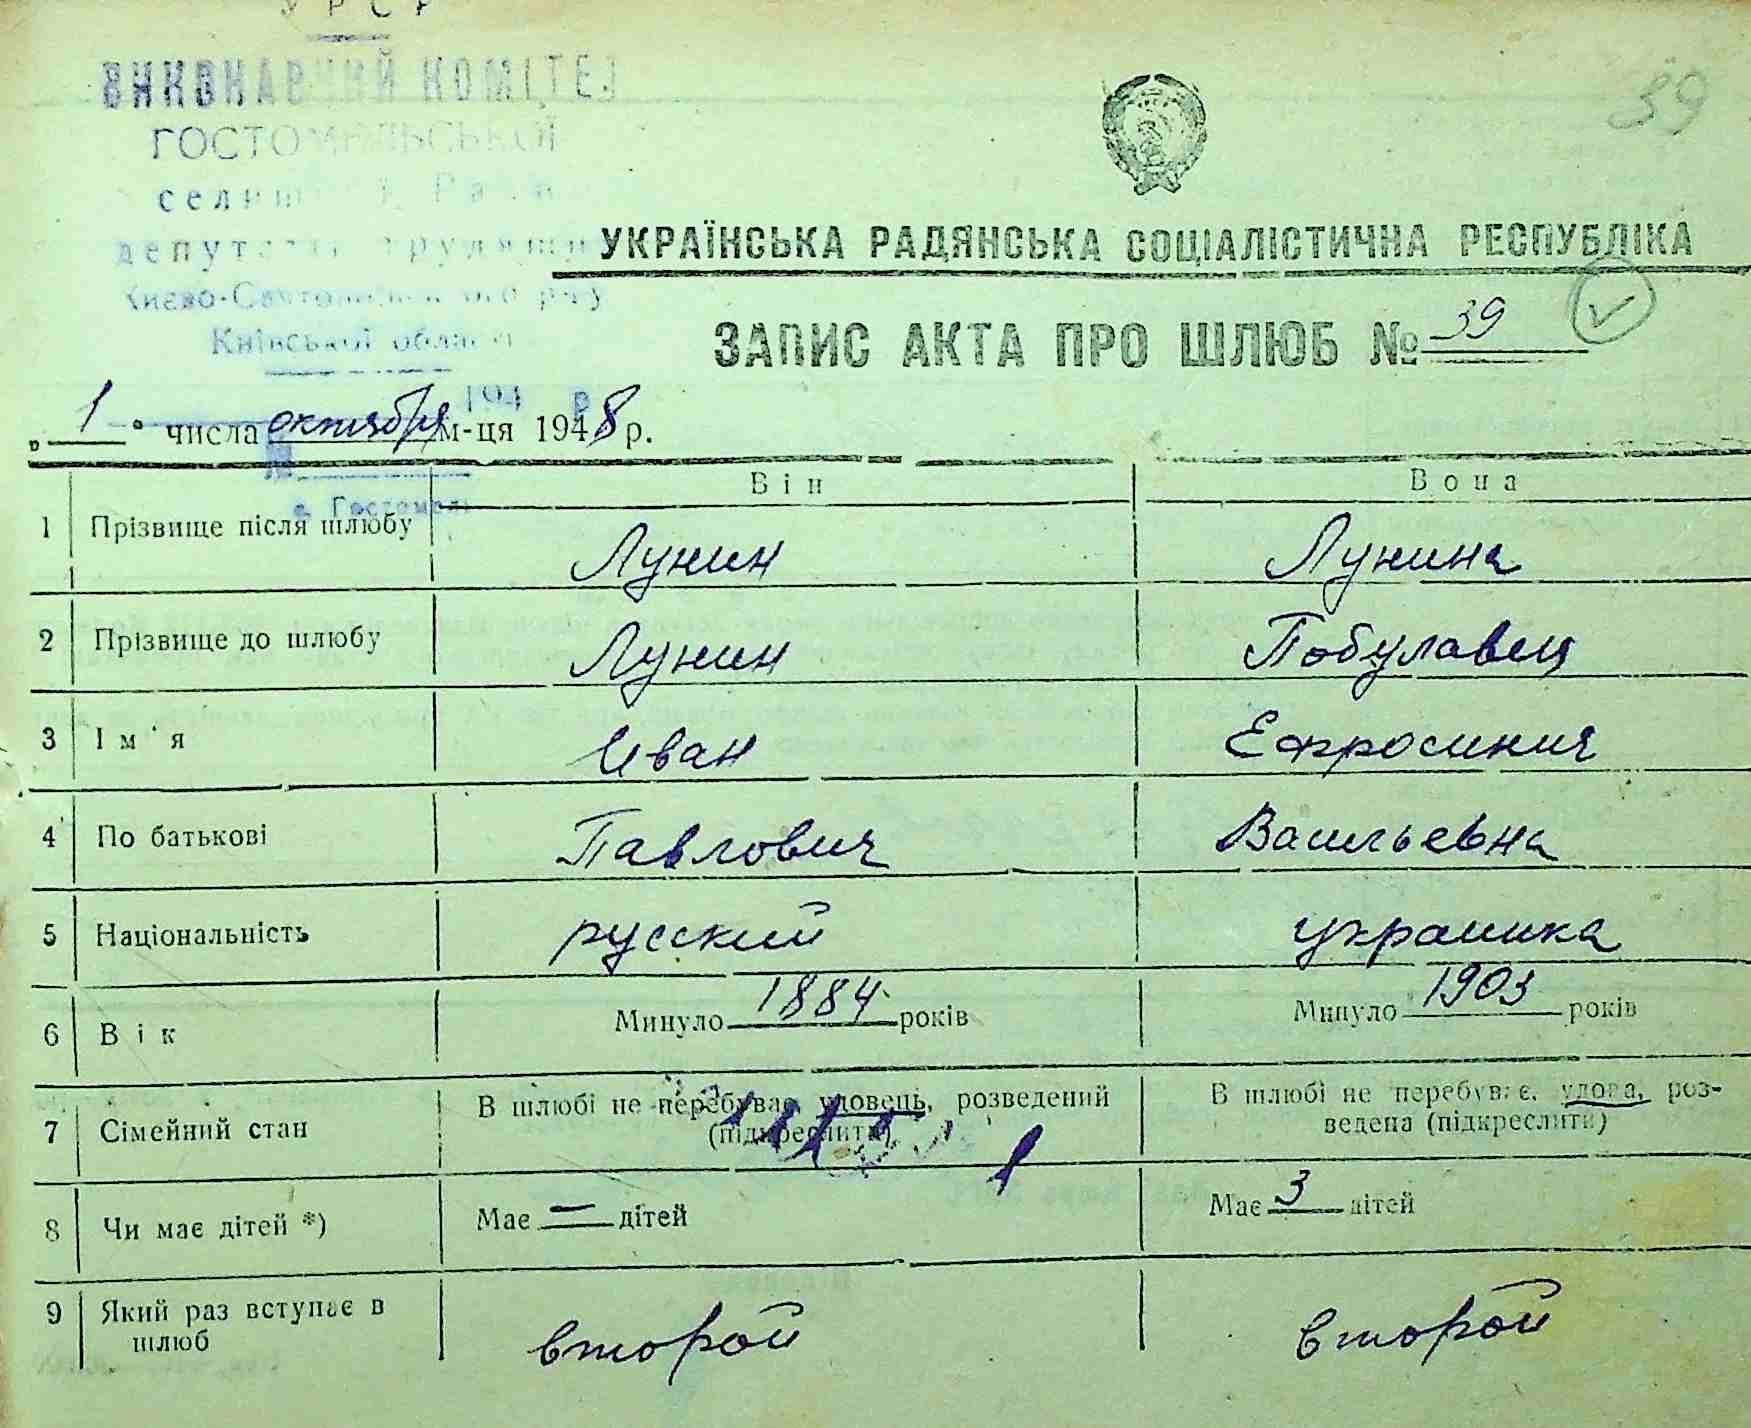 УРСР
ВИКОНАВЧИЙ КОМІТЕТ
ГОСТОМЕЛЬСЬКОЇ
селищної Ради
депутатів трудящих
Києво-Святошинського р-ну
Київської області
194 р.
№
с. Гостомель
39
УКРАЇНСЬКА РАДЯНСЬКА СОЦІАЛІСТИЧНА РЕСПУБЛІКА
ЗАПИС АКТА ПРО ШЛЮБ № 39
„1" числа октября м-ця 1948 р.
Він Вона
1 Прізвище після шлюбу Лунин Лунина
2 Прізвище до шлюбу Лунин Побулавец
3 Ім'я Иван Ефросиния
4 По батькові Павлович Васильевна
5 Національність русский украинка
6 Вік Минуло 1884 років Минуло 1903 років
7 Сімейний стан В шлюбі не перебуває, удовець, розведений (підкреслити) В шлюбі не перебуває, удова, розведена (підкреслити)
8 Чи має дітей *) Має — дітей Має 3 дітей
9 Який раз вступає в шлюб второй второй